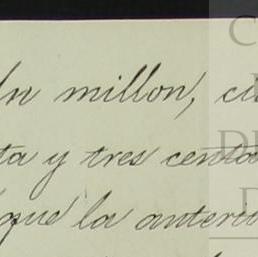 Un millon, ci
ta y tres centa
que la anteri